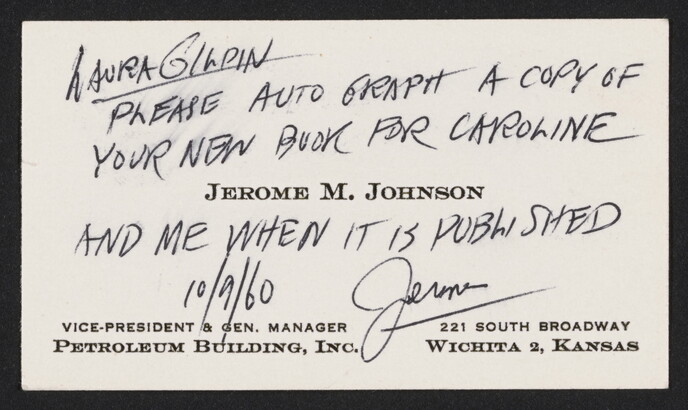 LAURA GILPIN
PLEASE AUTO GRAPH A COPY OF
YOUR NEW BOOK FOR CAROLINE
JEROME M. JOHNSON
AND ME WHEN IT IS PUBLISHED
10/9/60 Jerome
VICE-PRESIDENT & GEN. MANAGER 221 SOUTH BROADWAY
PETROLEUM BUILDING, INC. WICHITA 2, KANSAS